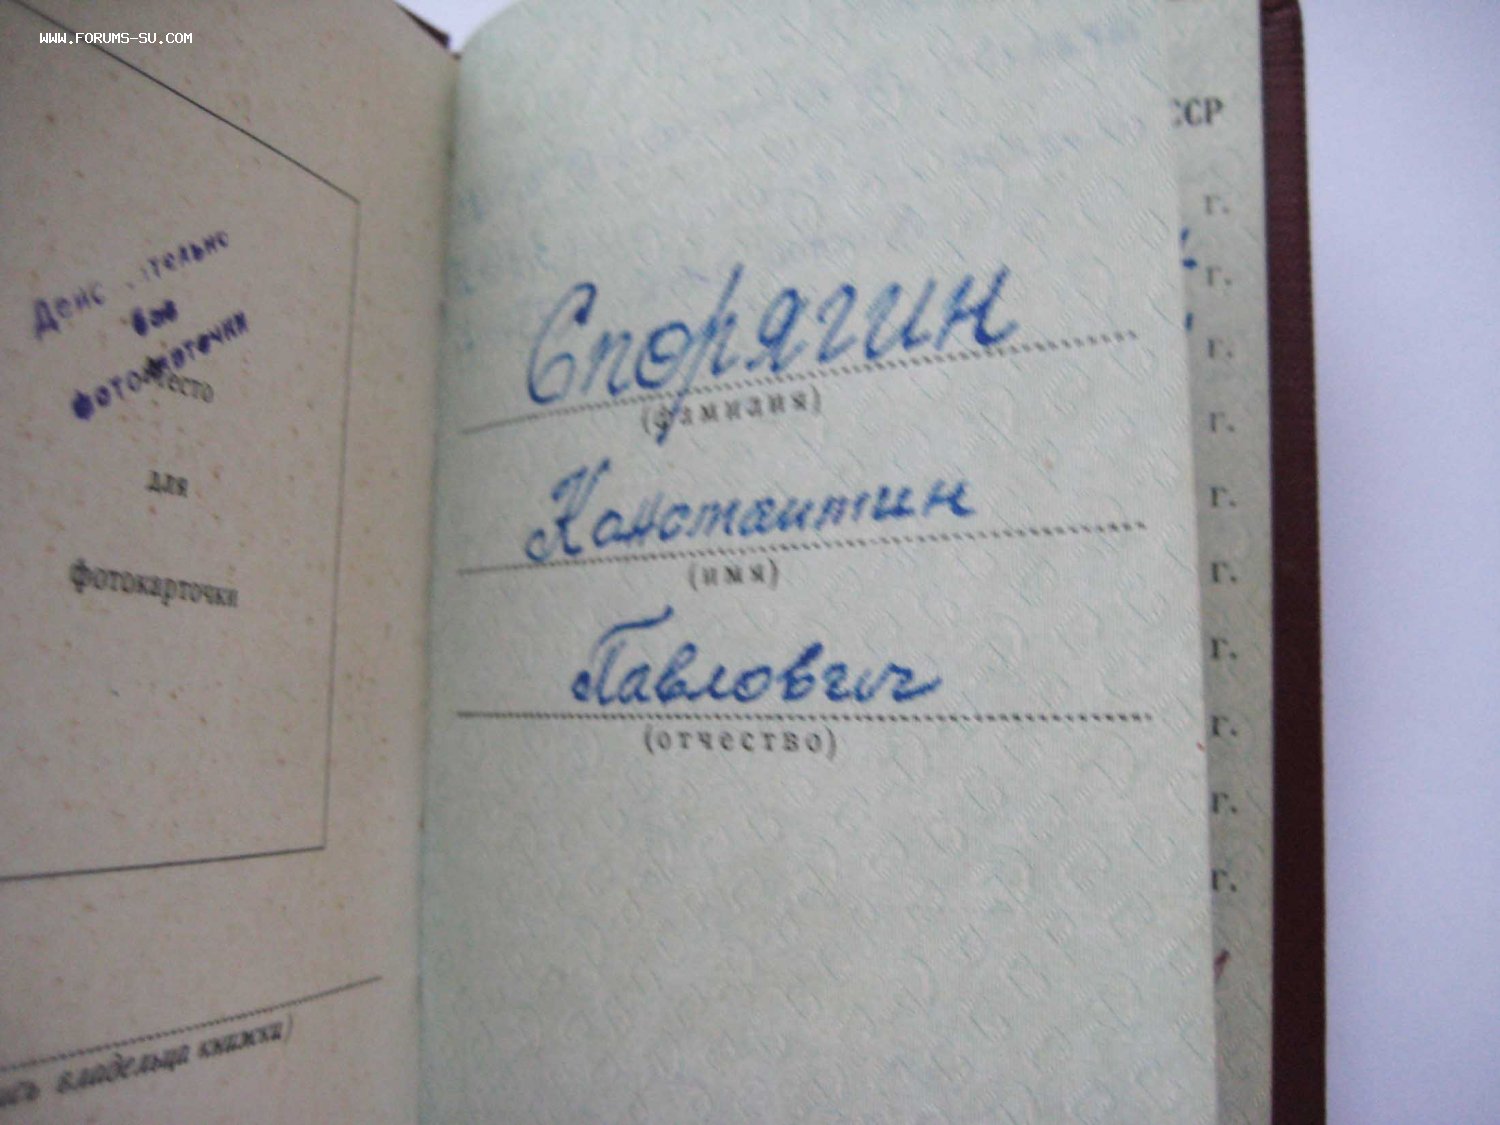 WWW.FORUMS-SU.COM
Дейс тельно
без
фотокарточки
Место
для
фотокарточки
ись владельца книжки)
Спорягин
(фамилия)
Константин
(имя)
Павлович
(отчество)
ССР
г.
г.
г.
г.
г.
г.
г.
г.
г.
г.